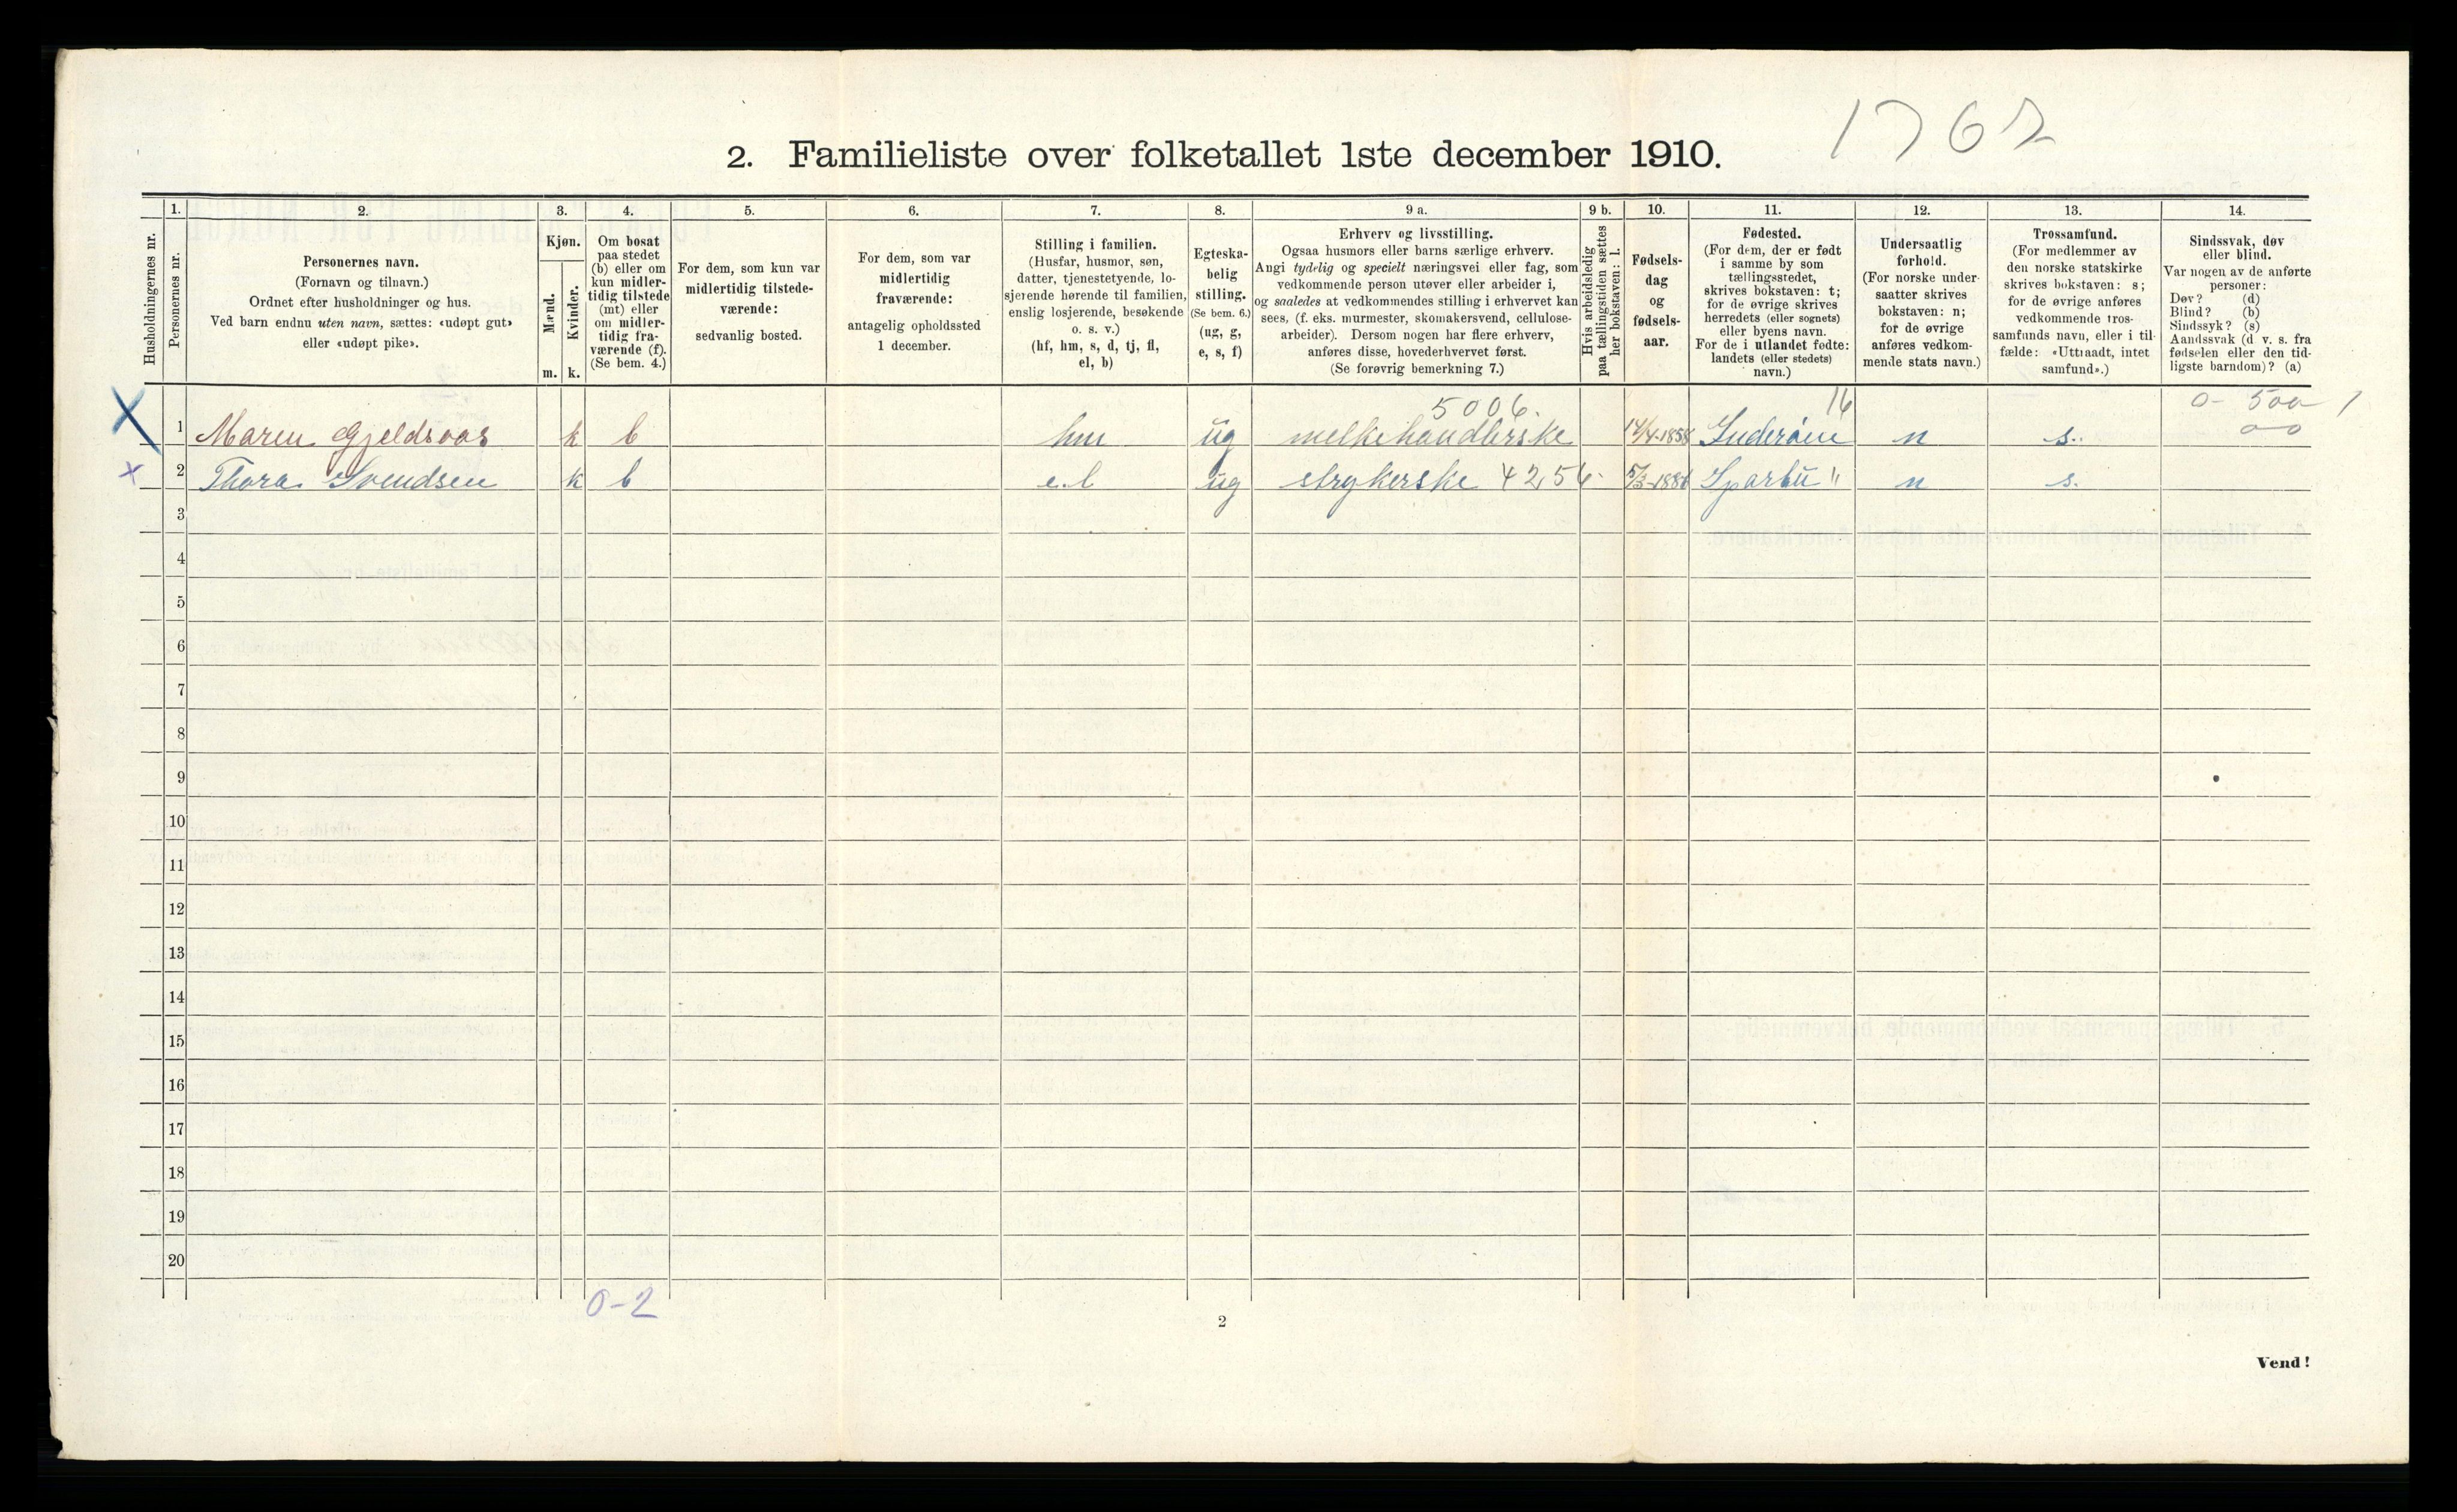 1762
2. Familieliste over folketallet 1ste december 1910.
Husholdningernes nr.
1.
Personernes nr.
2.
Personernes navn.
(Fornavn og tilnavn.)
Ordnet efter husholdninger og hus.
Ved barn endnu uten navn, sættes: «udøpt gut»
eller «udøpt pike».
3.
Kjøn.
Mænd.
m.
Kvinder.
k.
4.
Om bosat
paa stedet
(b) eller om
kun midler-
tidig tilstede
(mt) eller
om midler-
tidig fra-
værende (f).
(Se bem. 4.)
5.
For dem, som kun var
midlertidig tilstede-
værende:
sedvanlig bosted.
6.
For dem, som var
midlertidig
fraværende:
antagelig opholdssted
1 december.
7.
Stilling i familien.
(Husfar, husmor, søn,
datter, tjenestetyende, lo-
sjerende hørende til familien,
enslig losjerende, besøkende
o. s. v.)
(hf, hm, s, d, tj, fl,
el, b)
8.
Egteska-
belig
stilling.
(Se bem. 6.)
(ug, g,
e, s, f)
9 a.
Erhverv og livsstilling.
Ogsaa husmors eller barns særlige erhverv.
Angi tydelig og specielt næringsvei eller fag, som
vedkommende person utøver eller arbeider i,
og saaledes at vedkommendes stilling i erhvervet kan
sees, (f. eks. murmester, skomakersvend, cellulose-
arbeider). Dersom nogen har flere erhverv,
anføres disse, hovederhvervet først.
(Se forøvrig bemerkning 7.)
9 b.
Hvis arbeidsledig
paa tællingstiden sættes
her bokstaven: l.
10.
Fødsels-
dag
og
fødsels-
aar.
11.
Fødested.
(For dem, der er født
i samme by som
tællingsstedet,
skrives bokstaven: t;
for de øvrige skrives
herredets (eller sognets)
eller byens navn.
For de i utlandet fødte:
landets (eller stedets)
navn.)
12.
Undersaatlig
forhold.
(For norske under-
saatter skrives
bokstaven: n;
for de øvrige
anføres vedkom-
mende stats navn.)
13.
Trossamfund.
(For medlemmer av
den norske statskirke
skrives bokstaven: s;
for de øvrige anføres
vedkommende tros-
samfunds navn, eller i til-
fælde: «Uttraadt, intet
samfund».)
14.
Sindssvak, døv
eller blind.
Var nogen av de anførte
personer:
Døv? (d)
Blind? (b)
Sindssyk? (s)
Aandssvak (d. v. s. fra
fødselen eller den tid-
ligste barndom)? (a)
5006. 16 0- 500 1
1 Maren Gjeldsaas k b hm ug melkehandlerske 14/4-1858 Inderøen n s. 00
2 Thora Svendsen k b e.l ug strykerske 4256 5/3-1886 Sparbu " n s.
3
4
5
6
7
8
9
10
11
12
13
14
15
16
17
18
19
20
0-2
2
Vend!